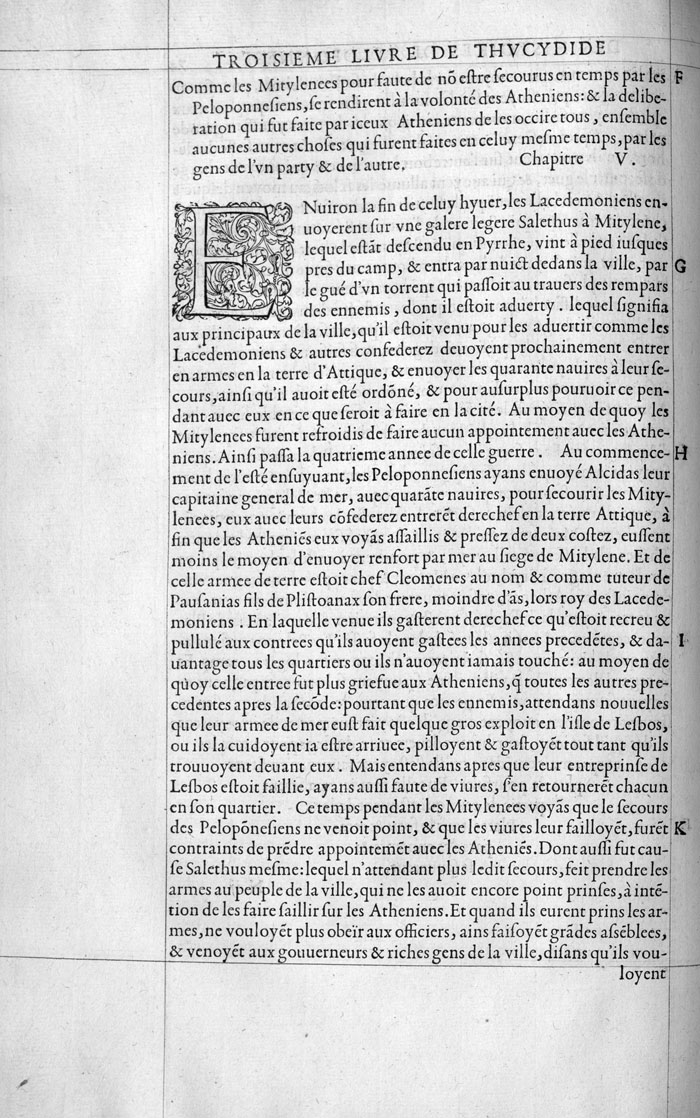 TROISIEME LIVRE DE THVCYDIDE
Comme les Mitylenees pour faute de nõ eſtre ſecourus en temps par les F
Peloponneſiens, ſe rendirent à la volonté des Atheniens: & la delibe-
ration qui fut faite par iceux Atheniens de les occire tous, enſemble
aucunes autres choſes qui furent faites en celuy meſme temps, par les
gens de l'vn party & de l'autre. Chapitre V.
ENuiron la fin de celuy hyuer, les Lacedemoniens en-
uoyerent ſur vne galere legere Salethus à Mitylene,
lequel eſtãt deſcendu en Pyrrhe, vint à pied iuſques
pres du camp, & entra par nuict dedans la ville, par G
le gué d'vn torrent qui paſſoit au trauers des rempars
des ennemis, dont il eſtoit aduerty. lequel ſignifia
aux principaux de la ville, qu'il eſtoit venu pour les aduertir comme les
Lacedemoniens & autres confederez deuoyent prochainement entrer
en armes en la terre d'Attique, & enuoyer les quarante nauires à leur ſe-
cours, ainſi qu'il auoit eſté ordõné, & pour auſurplus pouruoir ce pen-
dant auec eux en ce que ſeroit à faire en la cité. Au moyen de quoy les
Mitylenees furent refroidis de faire aucun appointement auec les Athe-
niens. Ainſi paſſa la quatrieme annee de celle guerre. Au commence- H
ment de l'eſté enſuyuant, les Peloponneſiens ayans enuoyé Alcidas leur
capitaine general de mer, auec quarãte nauires, pour ſecourir les Mity-
lenees, eux auec leurs cõfederez entrerẽt derechef en la terre Attique, à
fin que les Atheniẽs eux voyãs aſſaillis & preſſez de deux coſtez, euſſent
moins le moyen d'enuoyer renfort par mer au ſiege de Mitylene. Et de
celle armee de terre eſtoit chef Cleomenes au nom & comme tuteur de
Pauſanias fils de Pliſtoanax ſon frere, moindre d'ãs, lors roy des Lacede-
moniens. En laquelle venue ils gaſterent derechef ce qu'eſtoit recreu &
pullulé aux contrees qu'ils auoyent gaſtees les annees precedẽtes, & da- I
uantage tous les quartiers ou ils n'auoyent iamais touché: au moyen de
quoy celle entree fut plus griefue aux Atheniens, q̃ toutes les autres pre-
cedentes apres la ſecõde: pourtant que les ennemis, attendans nouuelles
que leur armee de mer euſt fait quelque gros exploit en l'iſle de Lesbos,
ou ils la cuidoyent ia eſtre arriuee, pilloyent & gaſtoyẽt tout tant qu'ils
trouuoyent deuant eux. Mais entendans apres que leur entreprinſe de
Lesbos eſtoit faillie, ayans auſſi faute de viures, ſ'en retournerẽt chacun
en ſon quartier. Ce temps pendant les Mitylenees voyãs que le ſecours
des Pelopõneſiens ne venoit point, & que les viures leur failloyẽt, furẽt K
contraints de prẽdre appointemẽt auec les Atheniẽs. Dont auſſi fut cau-
ſe Salethus meſme: lequel n'attendant plus ledit ſecours, feit prendre les
armes au peuple de la ville, qui ne les auoit encore point prinſes, à intẽ-
tion de les faire ſaillir ſur les Atheniens. Et quand ils eurent prins les ar-
mes, ne vouloyẽt plus obeïr aux officiers, ains faiſoyẽt grãdes aſsẽblees,
& venoyẽt aux gouuerneurs & riches gens de la ville, diſans qu'ils vou-
loyent